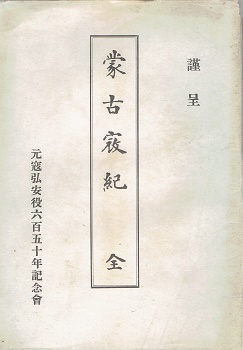 謹呈
蒙古寇紀 全
元寇弘安役六百五十年記念會